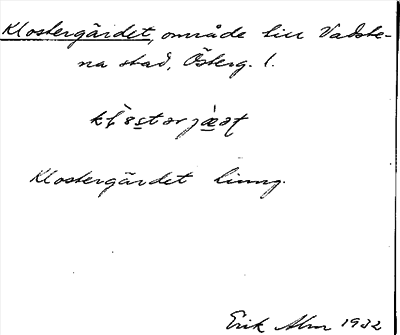 Klostergärdet, område till Vadste-
na stad, Österg. l.
Klostergärdet
Erik Alm 1932